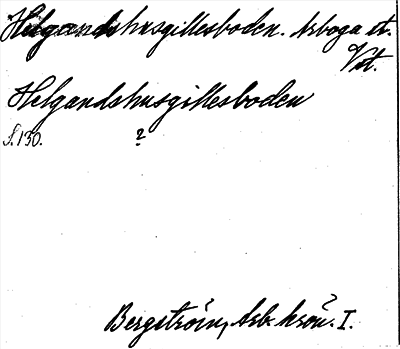 Helgandshusgillesboden. Arboga st.
Vstm.
Helgandshusgillesboden
S. 130. ?
Bergström, Arb. krön. I.